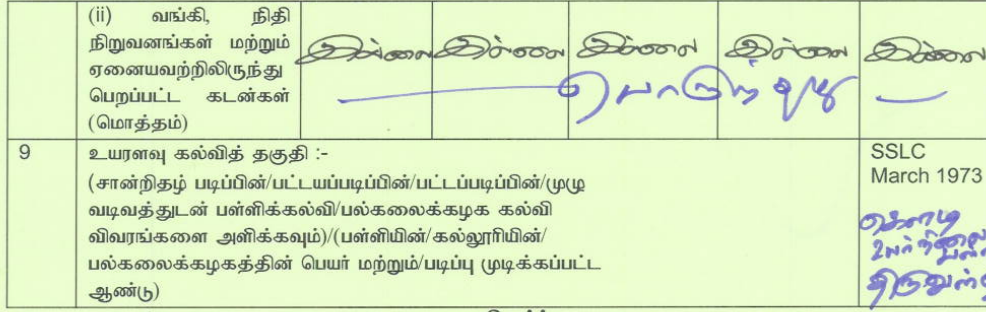 (ii) வங்கி, நிதி
நிறுவனங்கள் மற்றும்
ஏனையவற்றிலிருந்து
பெறப்பட்ட கடன்கள்
(மொத்தம்)
இல்லை இல்லை இல்லை இல்லை இல்லை
பொருந்தாது
9 உயரளவு கல்வித் தகுதி :-
(சான்றிதழ் படிப்பின்/பட்டயப்படிப்பின்/பட்டப்படிப்பின்/முழு
வடிவத்துடன் பள்ளிக்கல்வி/பல்கலைக்கழக கல்வி
விவரங்களை அளிக்கவும்)/(பள்ளியின்/கல்லூரியின்/
பல்கலைக்கழகத்தின் பெயர் மற்றும்/படிப்பு முடிக்கப்பட்ட
ஆண்டு)
SSLC
March 1973